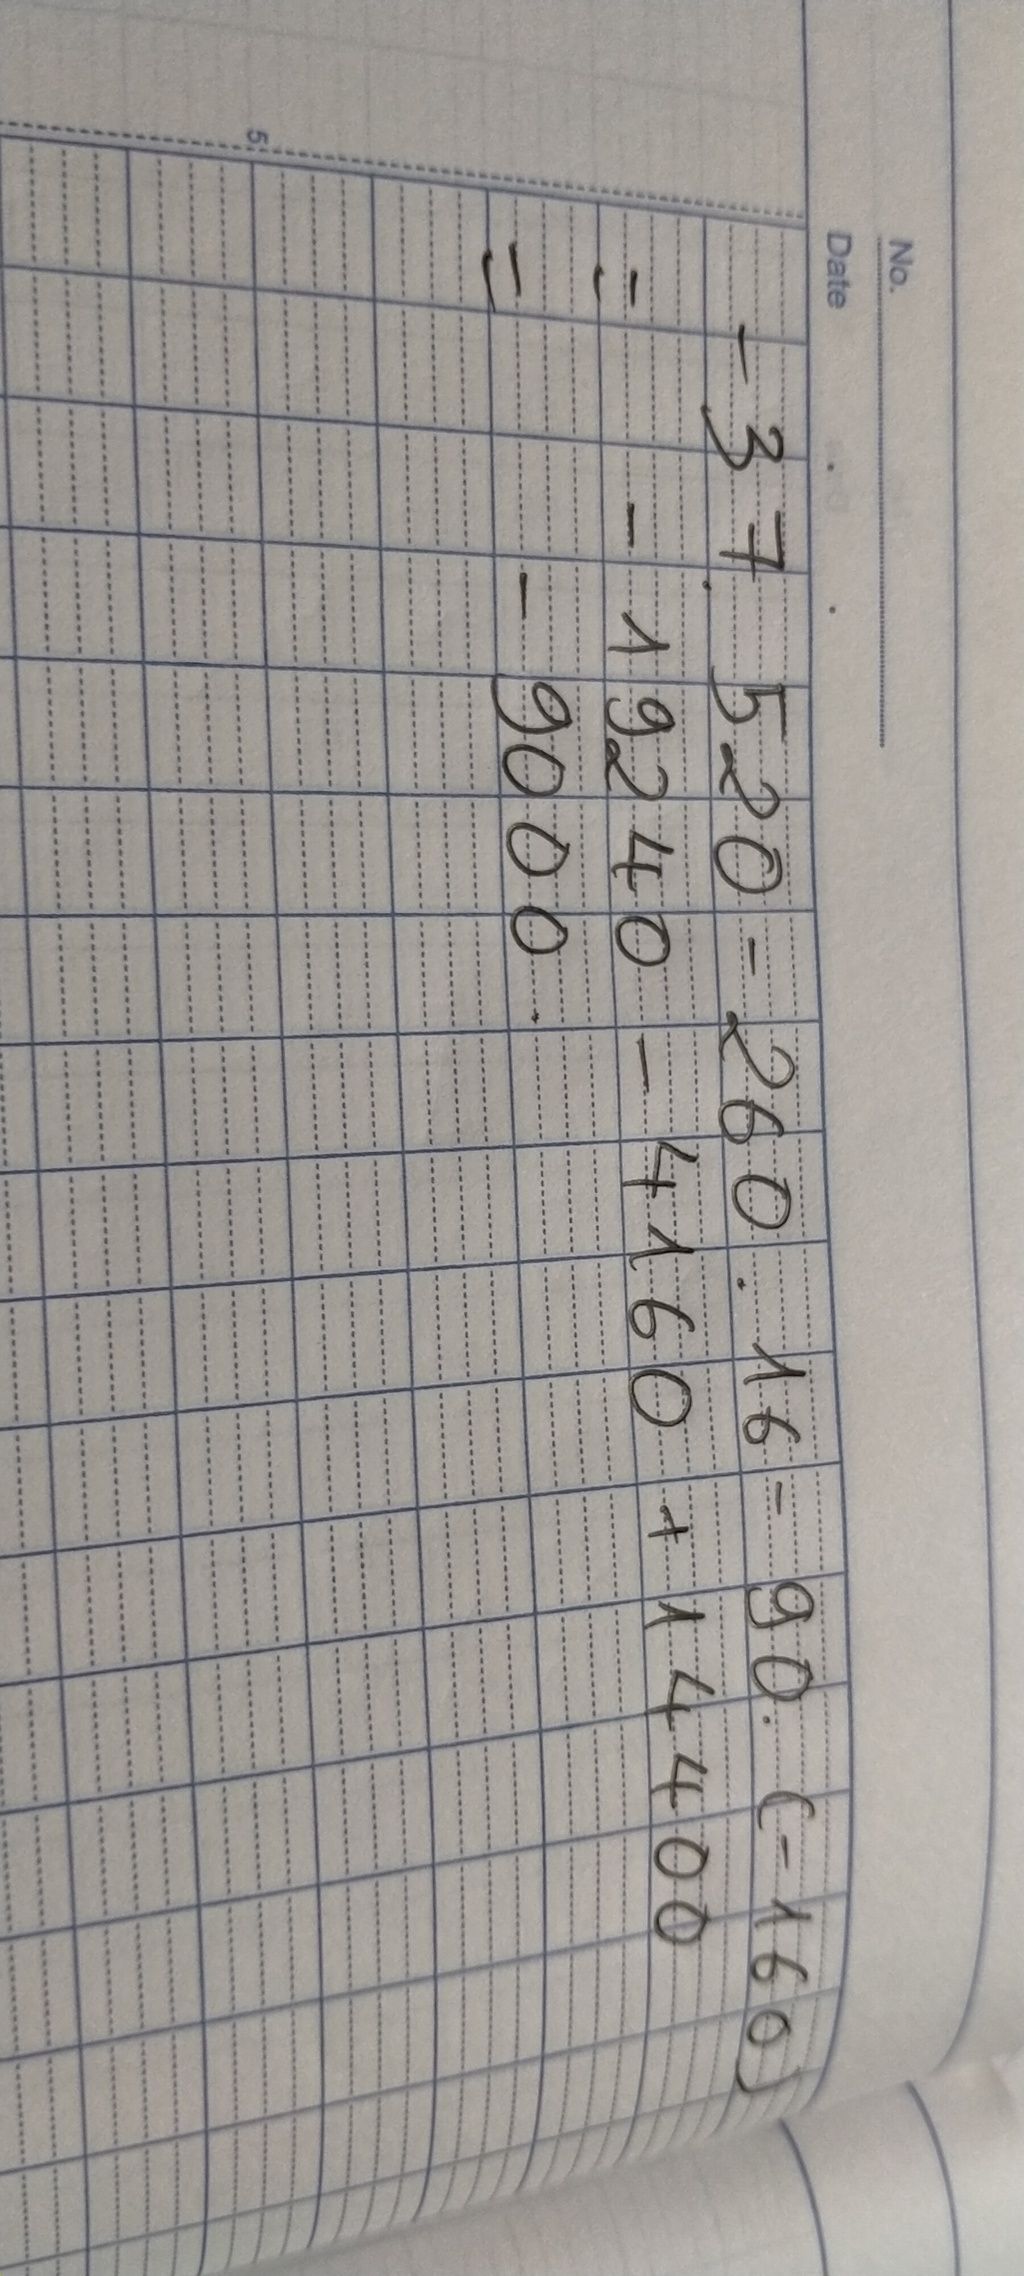 No.
Date . .
- 37. 520 - 260. 16 - 90. (-160)
= - 19240 - 4160 + 14400
= - 9000.
5